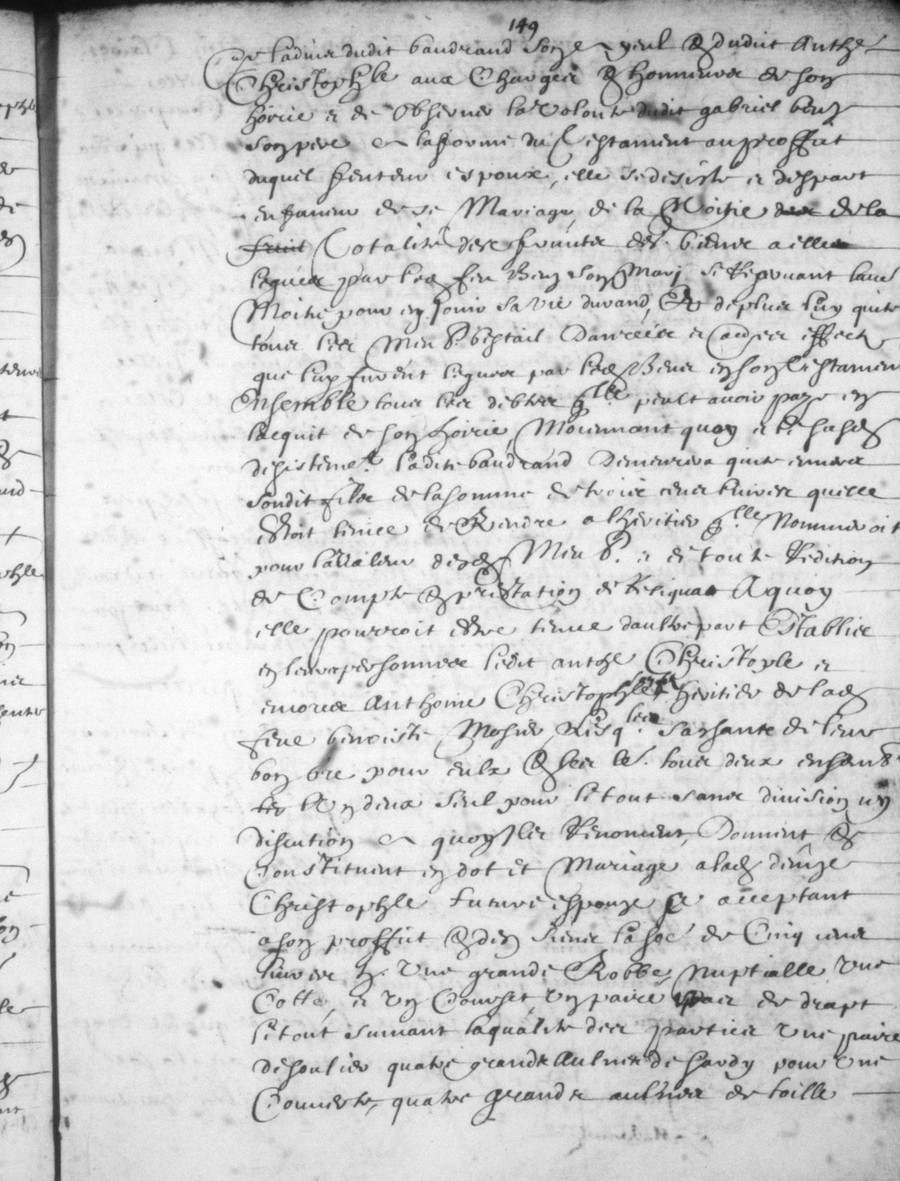 149
de ladvis dudit baudrand son ayeul & dudit Anthe
Christophle aux Charges & honneurs de son
hoirie et de observer la volonte dudit gabriel benz
son pere en la forme du testament au proffict
duquel futeur espoux, elle se desiste et despart
en faveur de se Mariage, de la Moitie de la
fruit totalite des fruits des biens a elle
legués par led feu son Mary se reservant laue
Moitie pour en jouir sa vie durand, Et de plus luy quite
tous les Meu b bestail danrees et autres effects
que luy furent legués par led en son testament
Ensemble tous les debtes qlle peult avoir paye en
lacquit de son hoirie, Moiennant quoy et le susd
desisteme.t ladite baudrand Demeurera quite envers
sondit filz de la somme de trois cens livres quelle
Estoit tenue de Rendre a lheritier qlle Nommeroit
pour la valeur desd Meu b. et de toute Redition
de Compte & prestation de Reliqua Aquoy
elle pourroit estre tenue daultre part Establis
en leurs personnes ledit anthe Christophle et
encores Anthoine Christophle heritier de lad
feue benoiste Mosnier Lesq.les sachants de leur
bon gre pour eulx & les leurs tous deux ensemble
et lun deux seul pour le tout sans division ny
discution a quoy ils Renoncent, Donnent &
Constituent en dot et Mariage a lad denize
Christophle future espouze acceptant
a son proffict & des siens la soe de Cinq cens
livres, une grande Robbe nuptialle une
Cotte et un Corset un paire de drapt
le tout suivant la qualite des parties une paire
de soulier quatre grands Aulnes de sardy pour une
Couverte, quatre grands aulnes de toille